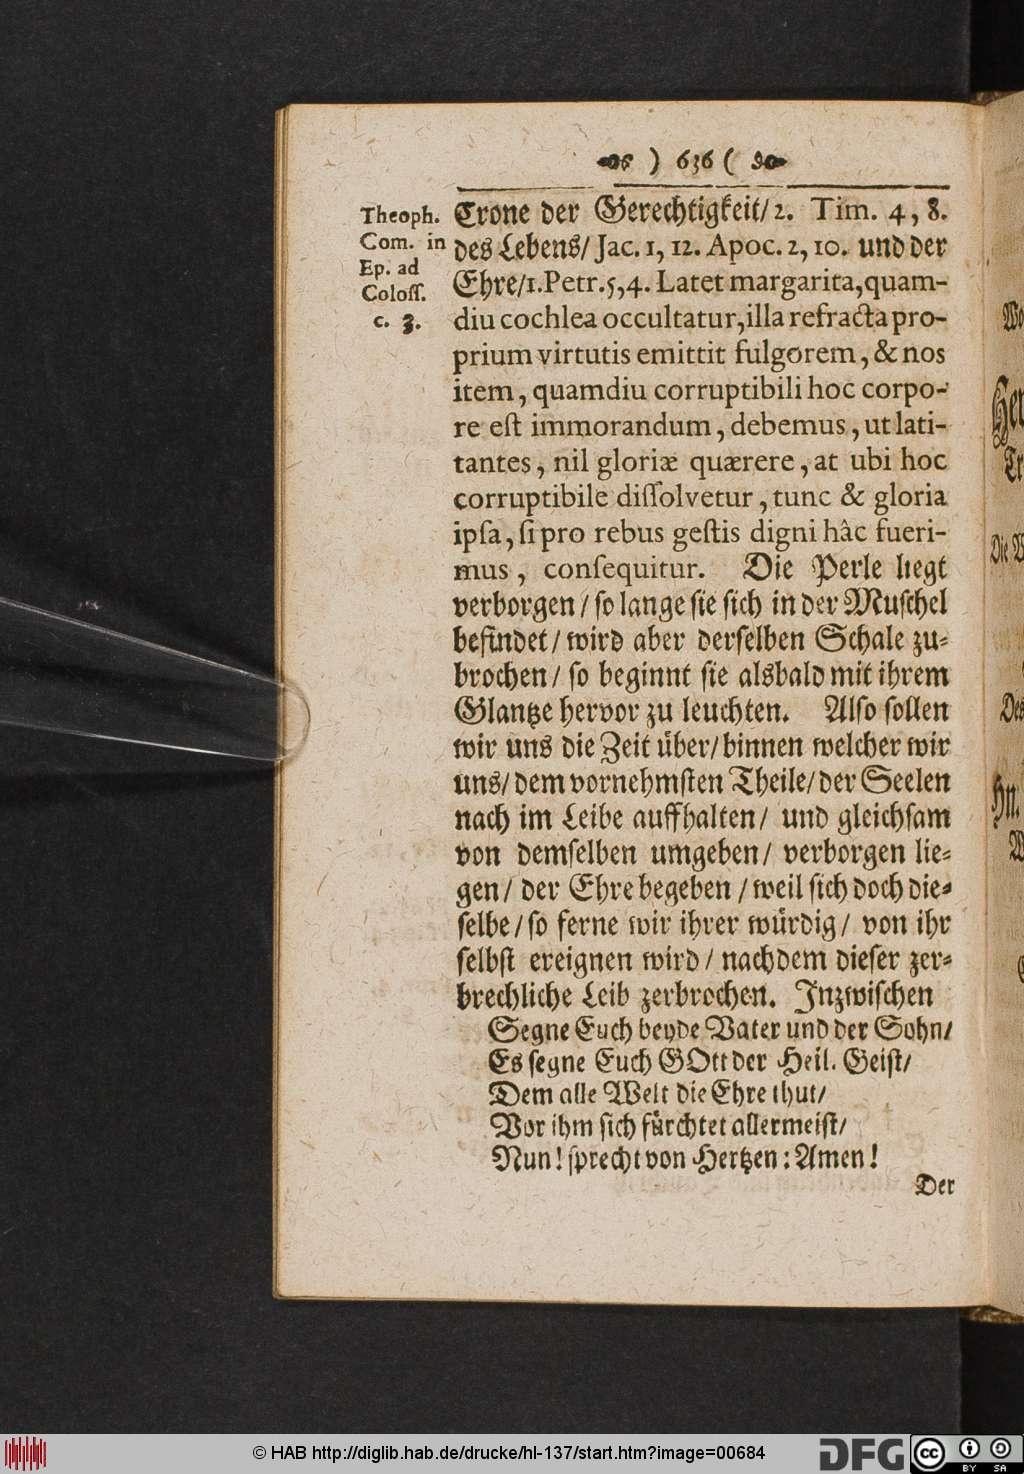 ) 636 (
Theoph.
Com. in
Ep. ad
Coloſſ.
c. 3.
Crone der Gerechtigkeit/2. Tim. 4, 8.
des Lebens/ Jac. 1, 12. Apoc. 2, 10. und der
Ehre/1. Petr. 5, 4. Latet margarita, quam-
diu cochlea occultatur, illa refracta pro-
prium virtutis emittit fulgorem, & nos
item, quamdiu corruptibili hoc corpo-
re eſt immorandum, debemus, ut lati-
tantes, nil gloriæ quærere, at ubi hoc
corruptibile diſſolvetur, tunc & gloria
ipſa, ſi pro rebus geſtis digni hâc fueri-
mus, conſequitur. Die Perle liegt
verborgen / ſo lange ſie ſich in der Muſchel
befindet/ wird aber derſelben Schale zu-
brochen/ ſo beginnt ſie alsbald mit ihrem
Glantze hervor zu leuchten. Alſo ſollen
wir uns die Zeit über/ binnen welcher wir
uns/ dem vornehmſten Theile/ der Seelen
nach im Leibe auffhalten/ und gleichſam
von demſelben umgeben/ verborgen lie-
gen/ der Ehre begeben / weil ſich doch die-
ſelbe/ ſo ferne wir ihrer würdig/ von ihr
ſelbſt ereignen wird/ nachdem dieſer zer-
brechliche Leib zerbrochen. Inzwiſchen
Segne Euch beyde Vater und der Sohn/
Es ſegne Euch GOtt der Heil. Geiſt/
Dem alle Welt die Ehre thut/
Vor ihm ſich fürchtet allermeiſt/
Nun! ſprecht von Hertzen: Amen!
Der
© HAB http://diglib.hab.de/drucke/hl-137/start.htm?image=00684
DFG
cc BY SA